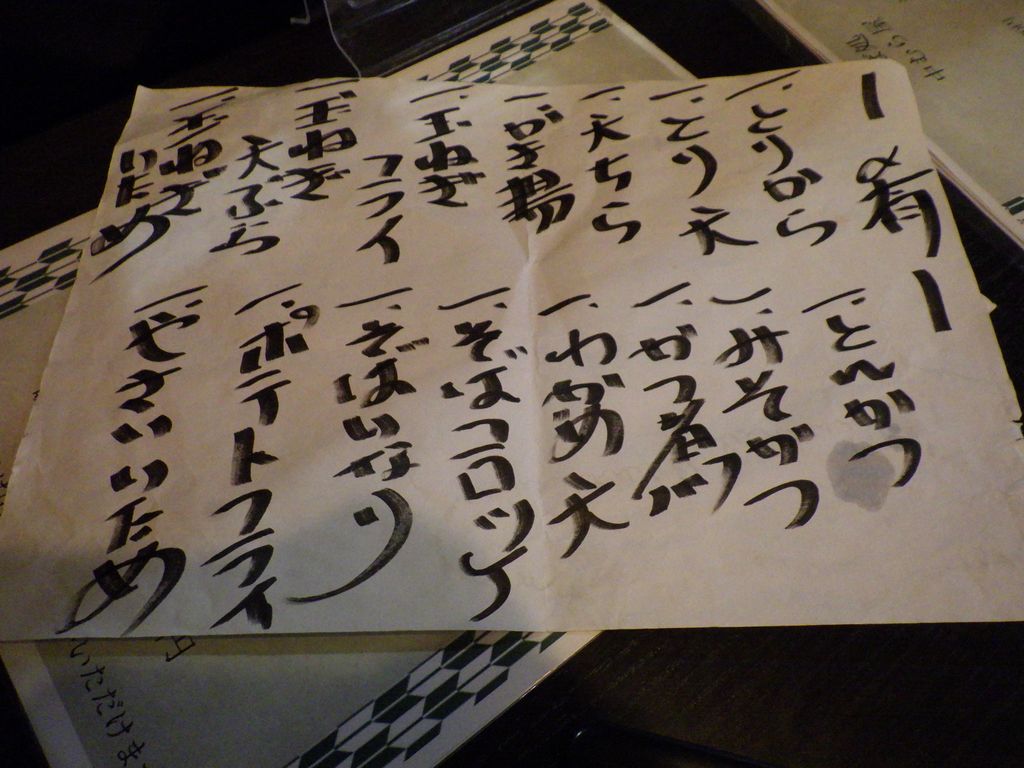 ー肴ー
一、とりから
一、とり天
一、天ちら
一、かき揚
一、玉ねぎフライ
一、玉ねぎ天ぷら
一、玉ねぎいため
一、とんかつ
一、みそかつ
一、かつ煮
一、わかめ天
一、そばコロッケ
一、そばいなり
一、ポテトフライ
一、やさいいため
いただけま